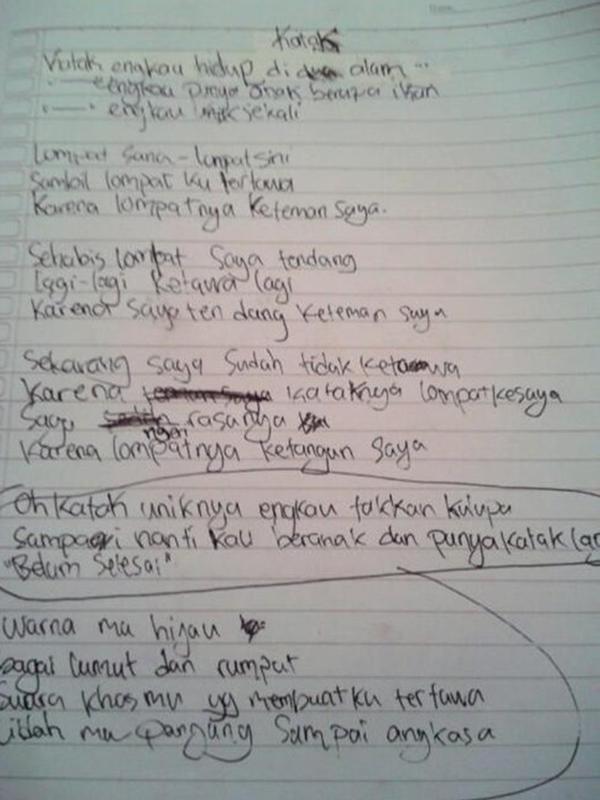 Katak
Katak engkau hidup di alam ...
engkau punya anak berupa ikan
engkau unik sekali
Lompat sana - lompat sini
Sambil lompat ku tertawa
Karena lompatnya keteman saya.
Sehabis lompat saya tendang
Lagi-lagi ketawa lagi
Karena saya tendang keteman saya
Sekarang saya sudah tidak ketawa
Karena kataknya lompat kesaya
Saya rasanya ngeri
Karena lompatnya ketangan saya
Oh katak uniknya engkau takkan kulupa
Sampai nanti kau beranak dan punya katak lag
"Belum selesai"
Warna mu hijau
bagai lumut dan rumput
Suara khasmu yg membuatku tertawa
Lidah mu panjang sampai angkasa